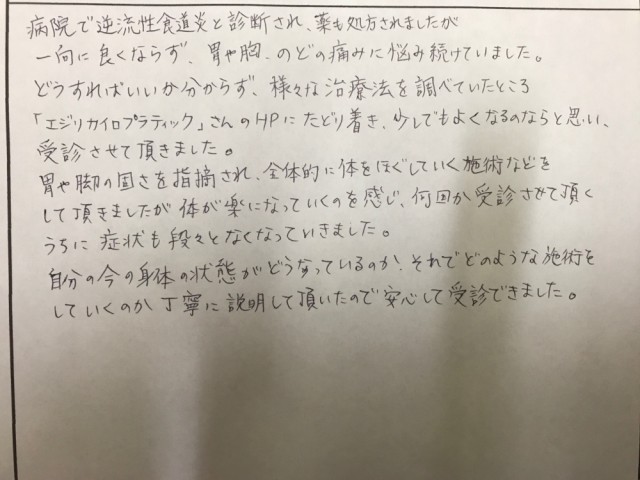 病院で逆流性食道炎と診断され、薬も処方されましたが
一向に良くならず、胃や胸、のどの痛みに悩み続けていました。
どうすればいいか分からず、様々な治療法を調べていたところ
「エジリカイロプラティック」さんのHPにたどり着き、少しでもよくなるのならと思い、
受診させて頂きました。
胃や脚の固さを指摘され、全体的に体をほぐしていく施術などを
して頂きましたが体が楽になっていくのを感じ、何回か受診させて頂く
うちに症状も段々となくなっていきました。
自分の今の身体の状態がどうなっているのか、それでどのような施術を
していくのか丁寧に説明して頂いたので安心して受診できました。